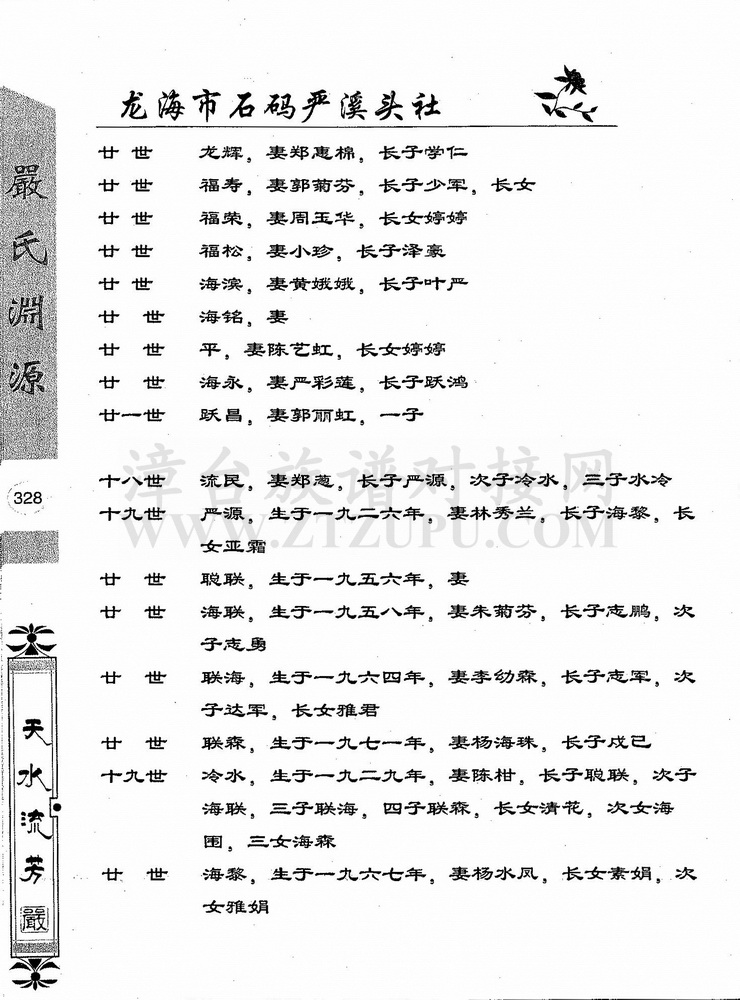 龙海市石码严溪头社
廿世 龙辉，妻郑惠棉，长子学仁
廿世 福寿，妻郭菊芬，长子少军，长女
廿世 福荣，妻周玉华，长女婷婷
廿世 福松，妻小珍，长子泽豪
廿世 海滨，妻黄娥娥，长子叶严
廿世 海铭，妻
廿世 平，妻陈艺虹，长女婷婷
廿世 海永，妻严彩莲，长子跃鸿
廿一世 跃昌，妻郭丽虹，一子
十八世 流民，妻郑葱，长子严源，次子冷水，三子水冷
十九世 严源，生于一九二六年，妻林秀兰，长子海黎，长
女亚霜
廿世 聪联，生于一九五六年，妻
廿世 海联，生于一九五八年，妻朱菊芬，长子志鹏，次
子志勇
廿世 联海，生于一九六四年，妻李幼森，长子志军，次
子达军，长女雅君
廿世 联森，生于一九七一年，妻杨海珠，长子戍已
十九世 冷水，生于一九二九年，妻陈柑，长子聪联，次子
海联，三子联海，四子联森，长女清花，次女海
围，三女海森
廿世 海黎，生于一九六七年，妻杨水凤，长女素娟，次
女雅娟
嚴氏淵源
328
天水流芳
嚴
漳台族谱对接网
WWW.ZTZUPU.COM